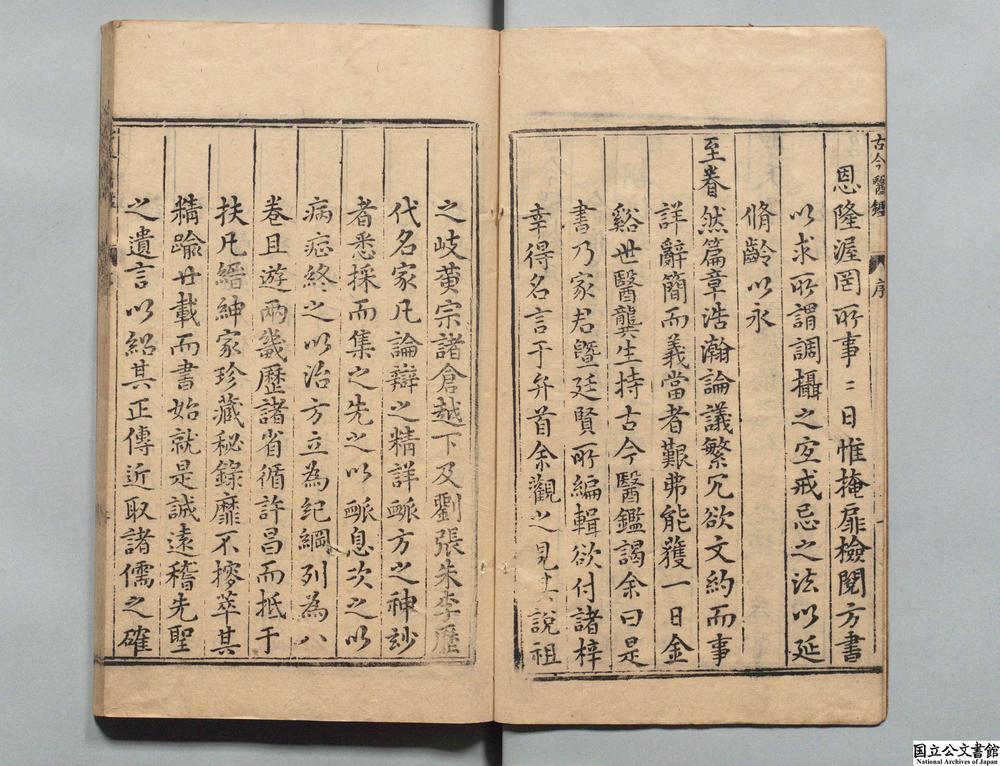 古今醫鑑
序
恩隆渥罔所事〻日惟掩扉檢閱方書
以求所謂調攝之宐戒忌之法以延
脩齡以永
至眷然篇章浩瀚論議繁冗欲文約而事
詳辭簡而義當者艱弗能獲一日金
谿世醫龔生持古今醫鑑謁余曰是
書乃家君曁廷賢所編輯欲付諸梓
幸得名言于弁首余觀之見其說祖
之岐黄宗諸倉越下及劉張朱李歷
代名家凡論辯之精詳脈方之神玅
者悉採而集之先之以脈息次之以
病症終之以治方立為紀綱列為八
卷且遊兩畿歷諸省循許昌而抵于
扶凡縉紳家珍藏秘錄靡不摎萃其
精踰廿載而書始就是誠遠稽先聖
之遺言以紹其正傳近取諸儒之確
国立公文書館
National Archives of Japan